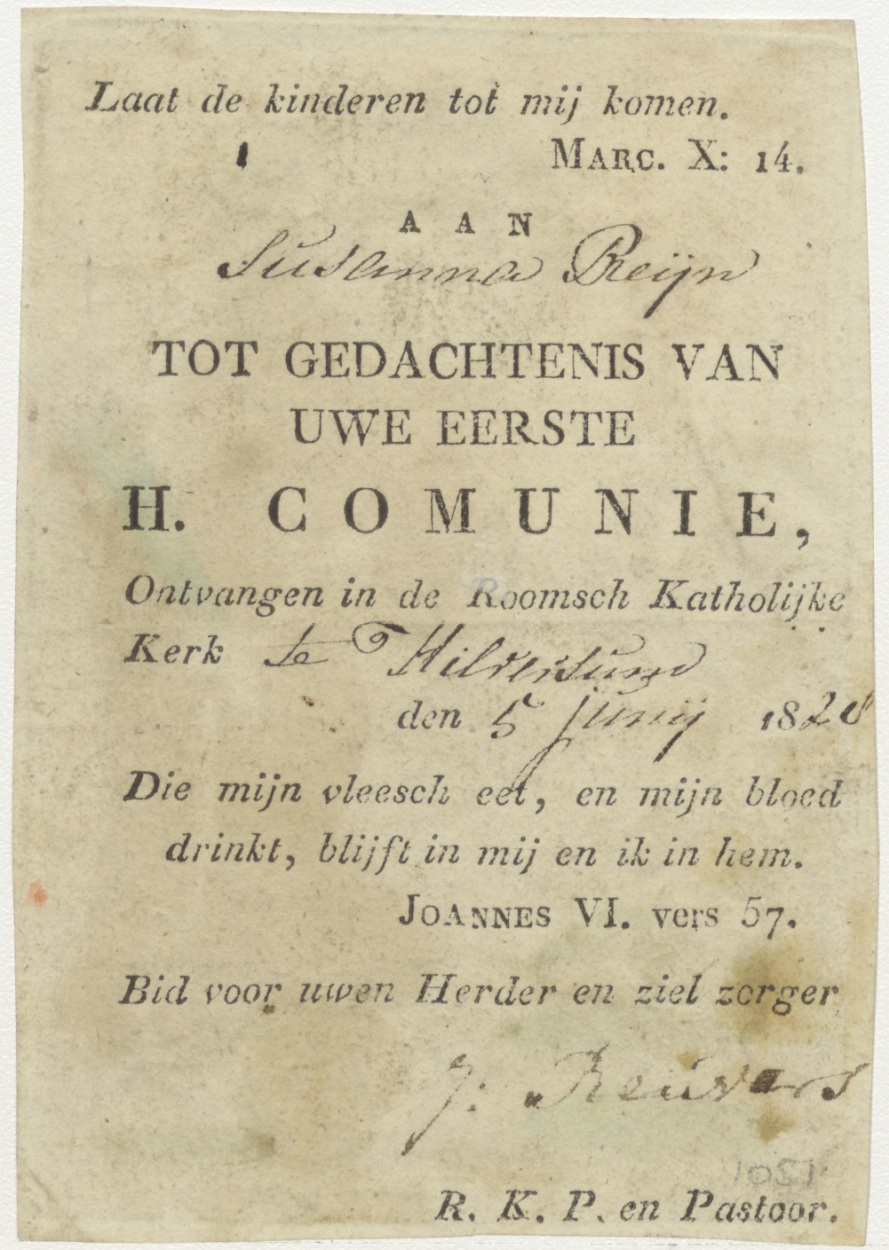 Laat de kinderen tot mij komen.
MARC. X: 14.
AAN
Susanna Reijn
TOT GEDACHTENIS VAN
UWE EERSTE
H. COMUNIE,
Ontvangen in de Roomsch Katholijke
Kerk te Hilversum
den 5 Junij 1828
Die mijn vleesch eet, en mijn bloed
drinkt, blijft in mij en ik in hem.
JOANNES VI. vers 57.
Bid voor uwen Herder en ziel zorger
J. Reuvers
1051
R. K. P. en Pastoor.